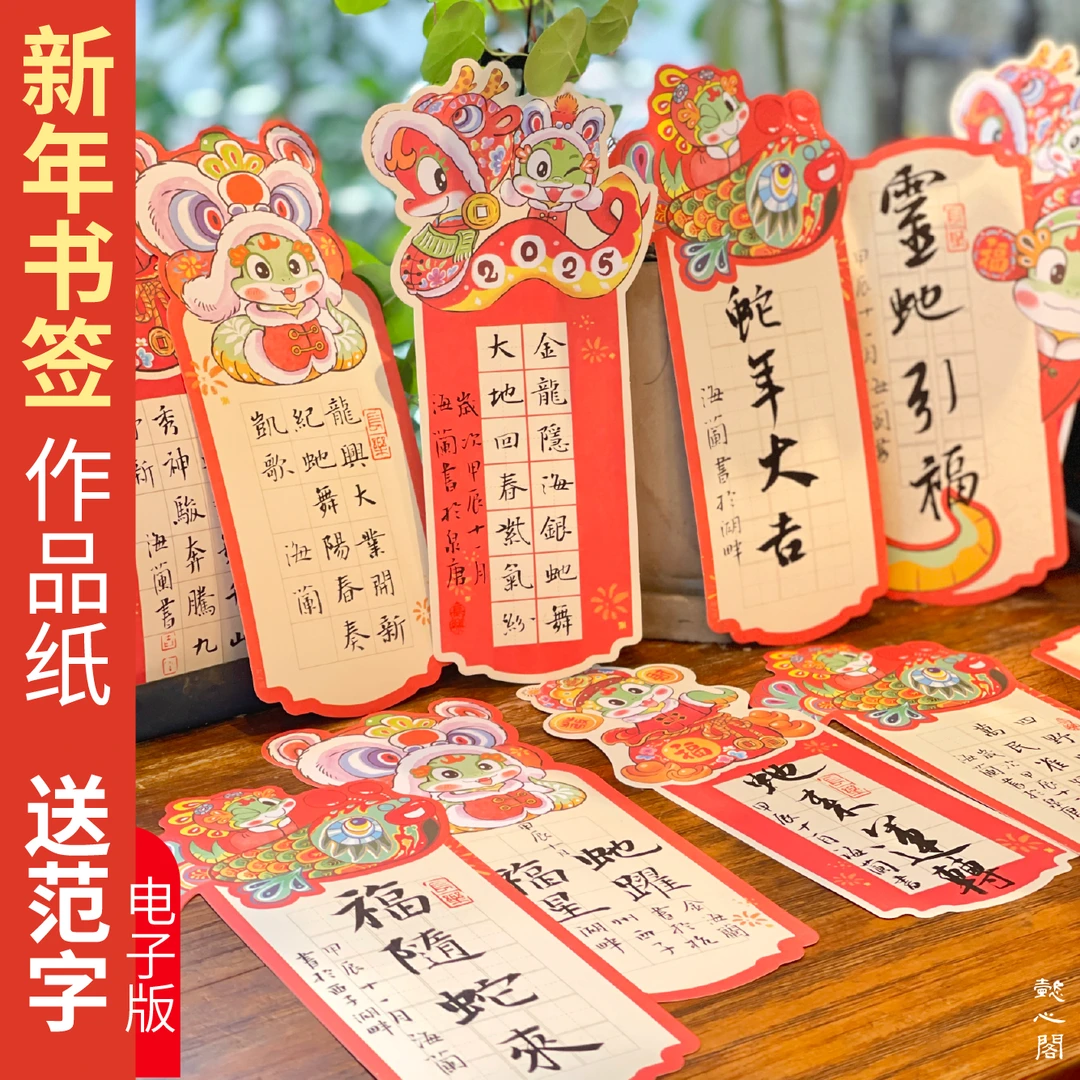 新年书签
作品纸
送范字
电子版
秀
神駿奔騰九
海蘭書
龍興大業開新
紀虵舞陽春奏
凱歌
海蘭
2025
金龍隱海銀虵舞
大地回春紫氣紛
歲次甲辰十一月
海蘭書於泉唐
蛇年大吉
海蘭書於湖畔
靈虵引福
甲辰十一月海蘭書
福
福隨蛇來
甲辰十一月海蘭
書於西子湖畔
虵躍
福星
福
虵來運轉
甲辰十一月海蘭書
四野
萬民
懿心閣